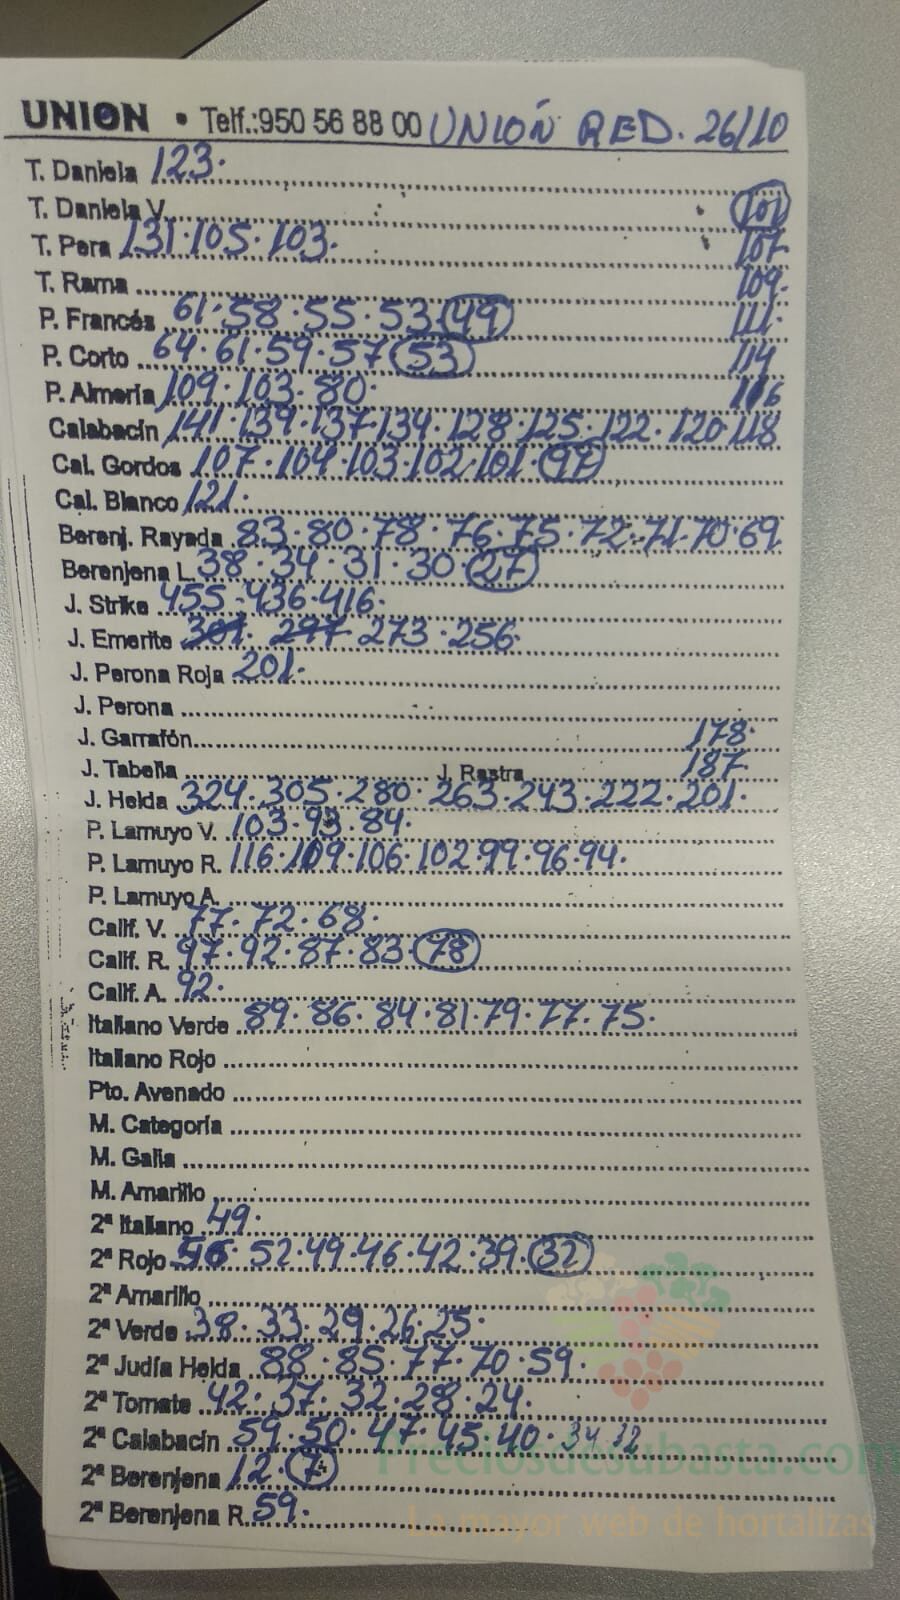 UNION • Telf.:950 56 88 00 UNIÓN RED. 26/10
T. Daniela 123.
T. Daniela V. 101
T. Pera 131.105.103. 107.
T. Rama 109.
P. Francés 61.58.55.53.49 111.
P. Corto 64.61.59.57 53 114
P. Almería 109.103.80. 116
Calabacín 141.139.137.134.128.125.122.120.118
Cal. Gordos 107.104.103.102.101.97
Cal. Blanco 121.
Berenj. Rayada 83.80.78.76.75.72.71.70.69
Berenjena L. 38.34.31.30.27
J. Strike 455.436.416.
J. Emerite 301. 297 273.256.
J. Perona Roja 201.
J. Perona
J. Garrafón 178.
J. Tabella J. Rastra 187
J. Helda 324.305.280.263.243.222.201.
P. Lamuyo V. 103.93.84.
P. Lamuyo R. 116.109.106.102.99.96.94.
P. Lamuyo A.
Calif. V. 77.72.68.
Calif. R. 97.92.87.83.78
Calif. A. 92.
Italiano Verde 89.86.84.81.79.77.75.
Italiano Rojo
Pto. Avenado
M. Categoría
M. Galia
M. Amarillo
2ª Italiano 49.
2ª Rojo 52.49.46.42.39.32
2ª Amarillo
2ª Verde 38.33.29.26.25.
2ª Judía Helda 88.85.77.70.59.
2ª Tomate 42.37.32.28.24.
2ª Calabacín 59.50.47.45.40.34.32
Preciosdesubasta.com
2ª Berenjena 12.7
La mayor web de hortalizas
2ª Berenjena R. 59.